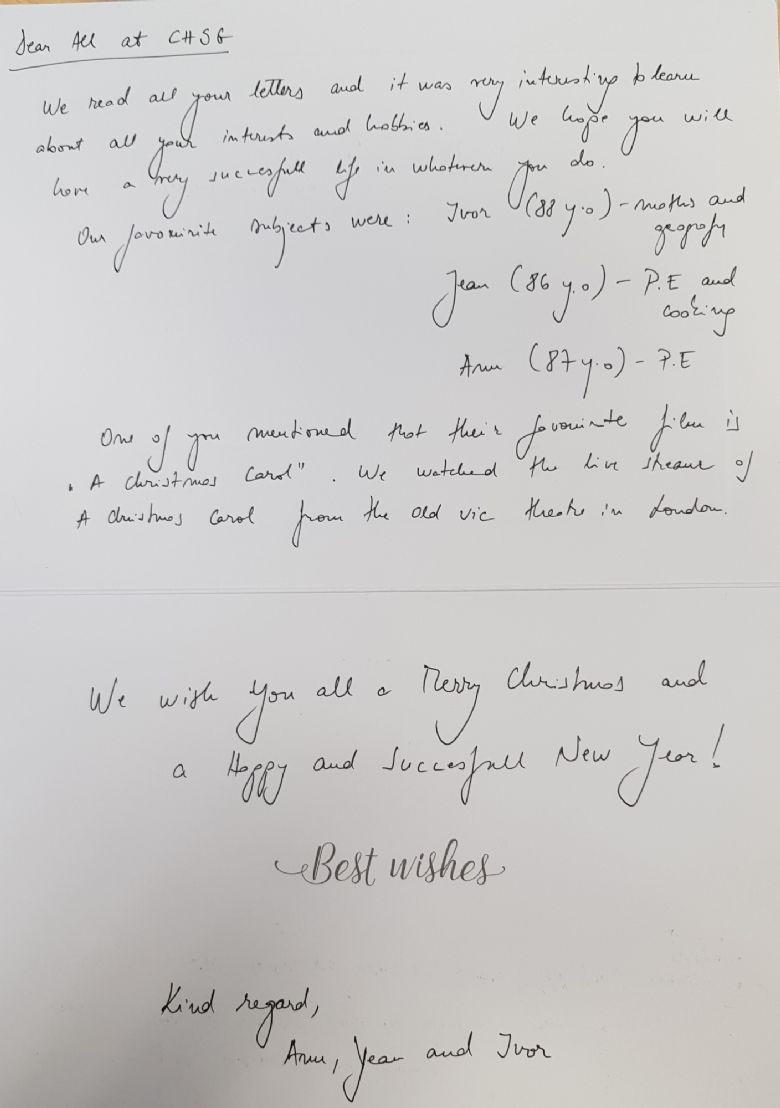 Dear All at CHSG
We read all your letters and it was very interesting to learn
about all your interests and hobbies. We hope you will
have a very succesfull life in whatever you do.
Our favouirite subjects were : Ivor (88 y.o) - maths and
geograpfy
Jean (86 y.o) - P.E and
cooking
Ann (87 y.o) - P.E
One of you mentioned that their favouirite film is
"A Christmas Carol". We watched the live stream of
A Christmas Carol from the old vic theatre in London.
We wish you all a Merry Christmas and
a Happy and Succesfull New Year!
Best wishes
Kind regard,
Ann, Jean and Ivor